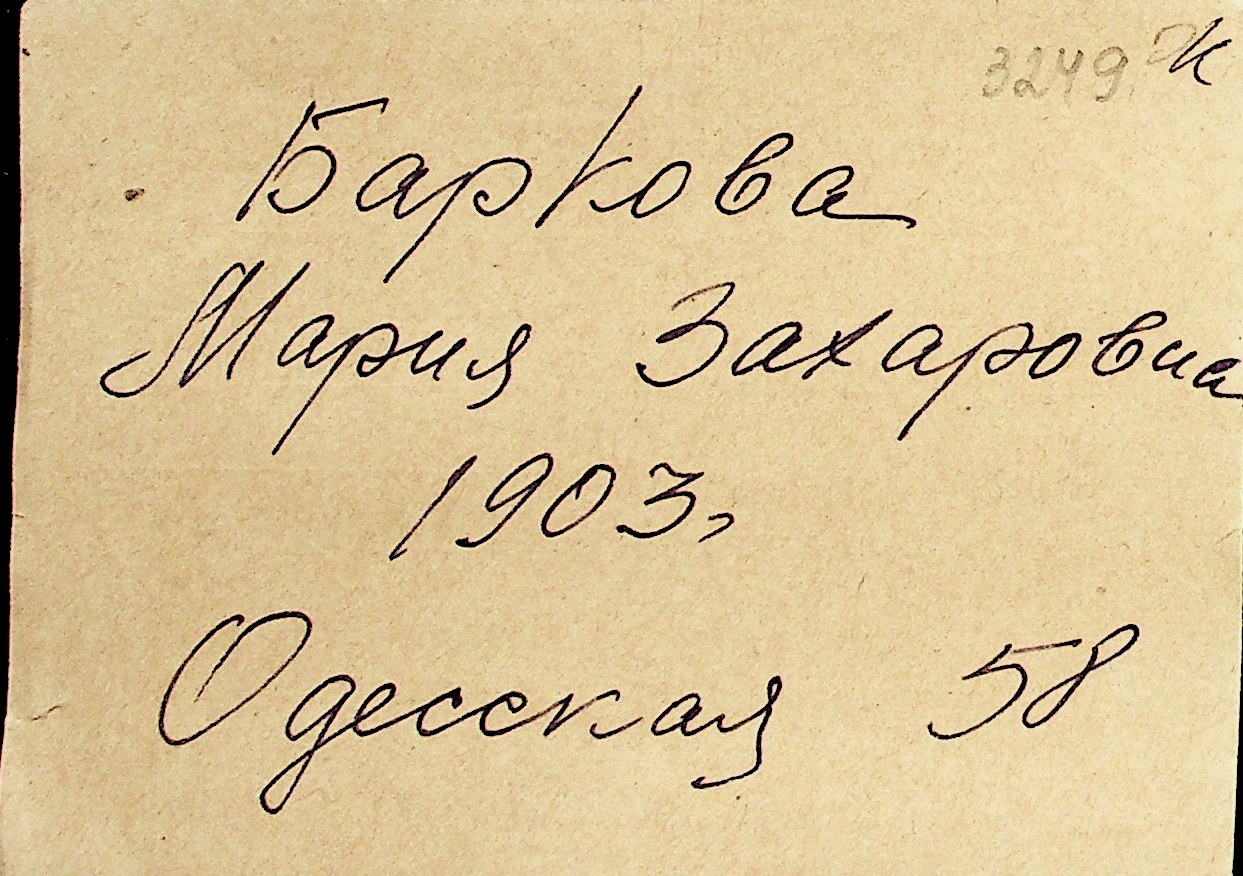 3249 К
Баркова
Мария Захаровна
1903,
Одесская 58